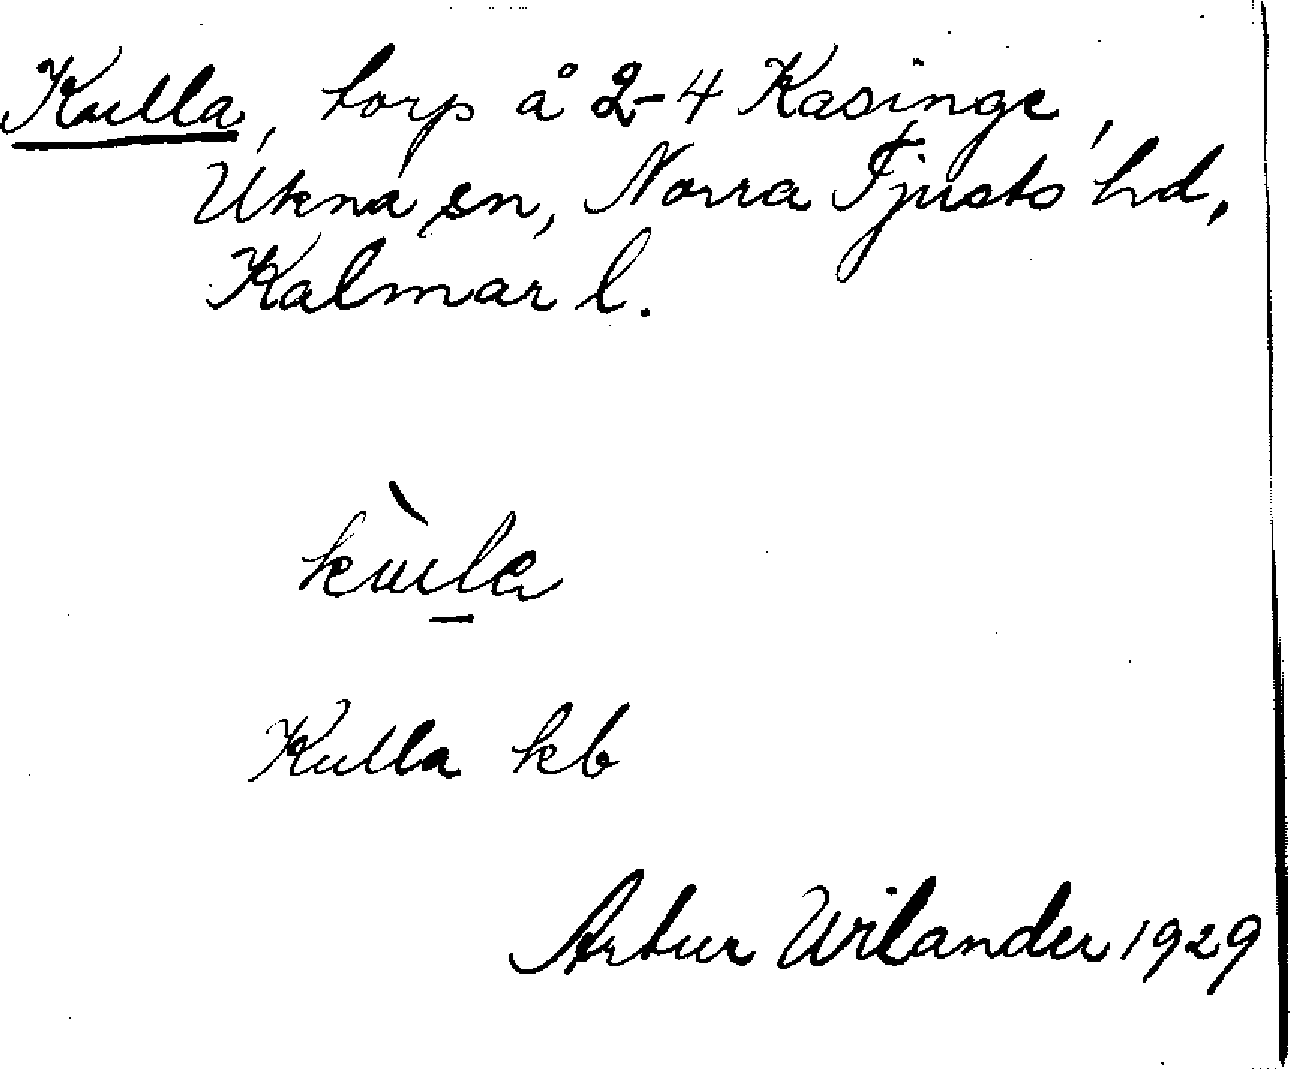 Kulla, torp å 2-4 Kasinge,
Ukna sn, Norra Tjusts hd,
Kalmar l.
kùla
Kulla kb
Artur Wilander 1929